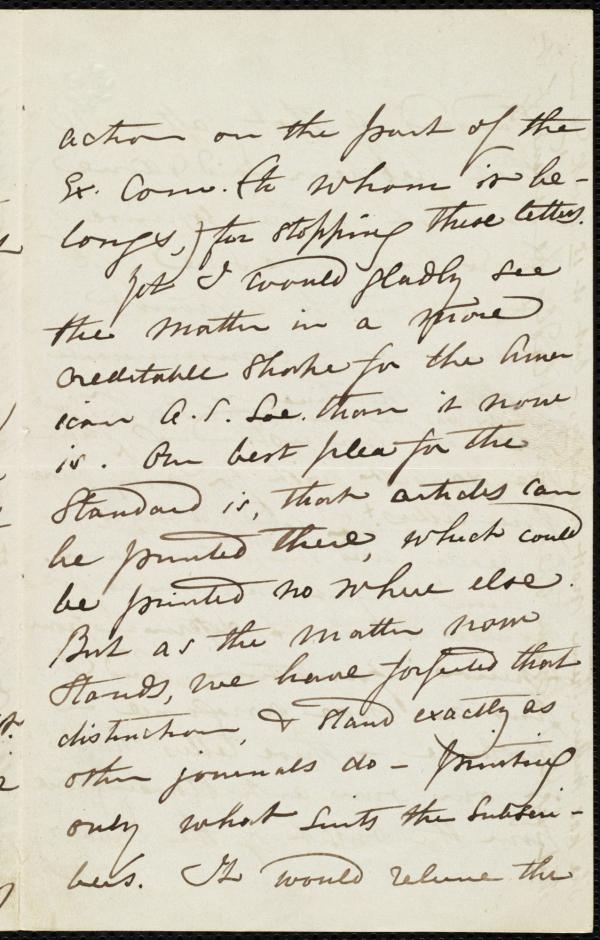 action on the part of the
Ex. Com. (to whom it be-
longs,) for stopping these letters.
Yet I would gladly see
the matter in a more
creditable shape for the Amer
ican A. S. Soc. than it now
is. Our best plea for the
Standard is, that articles can
be printed there, which could
be printed no where else.
But as the matter now
stands, we have forfeited that
distinction, & stand exactly as
other journals do - printing
only what suits the subscri-
bers. It would relieve the